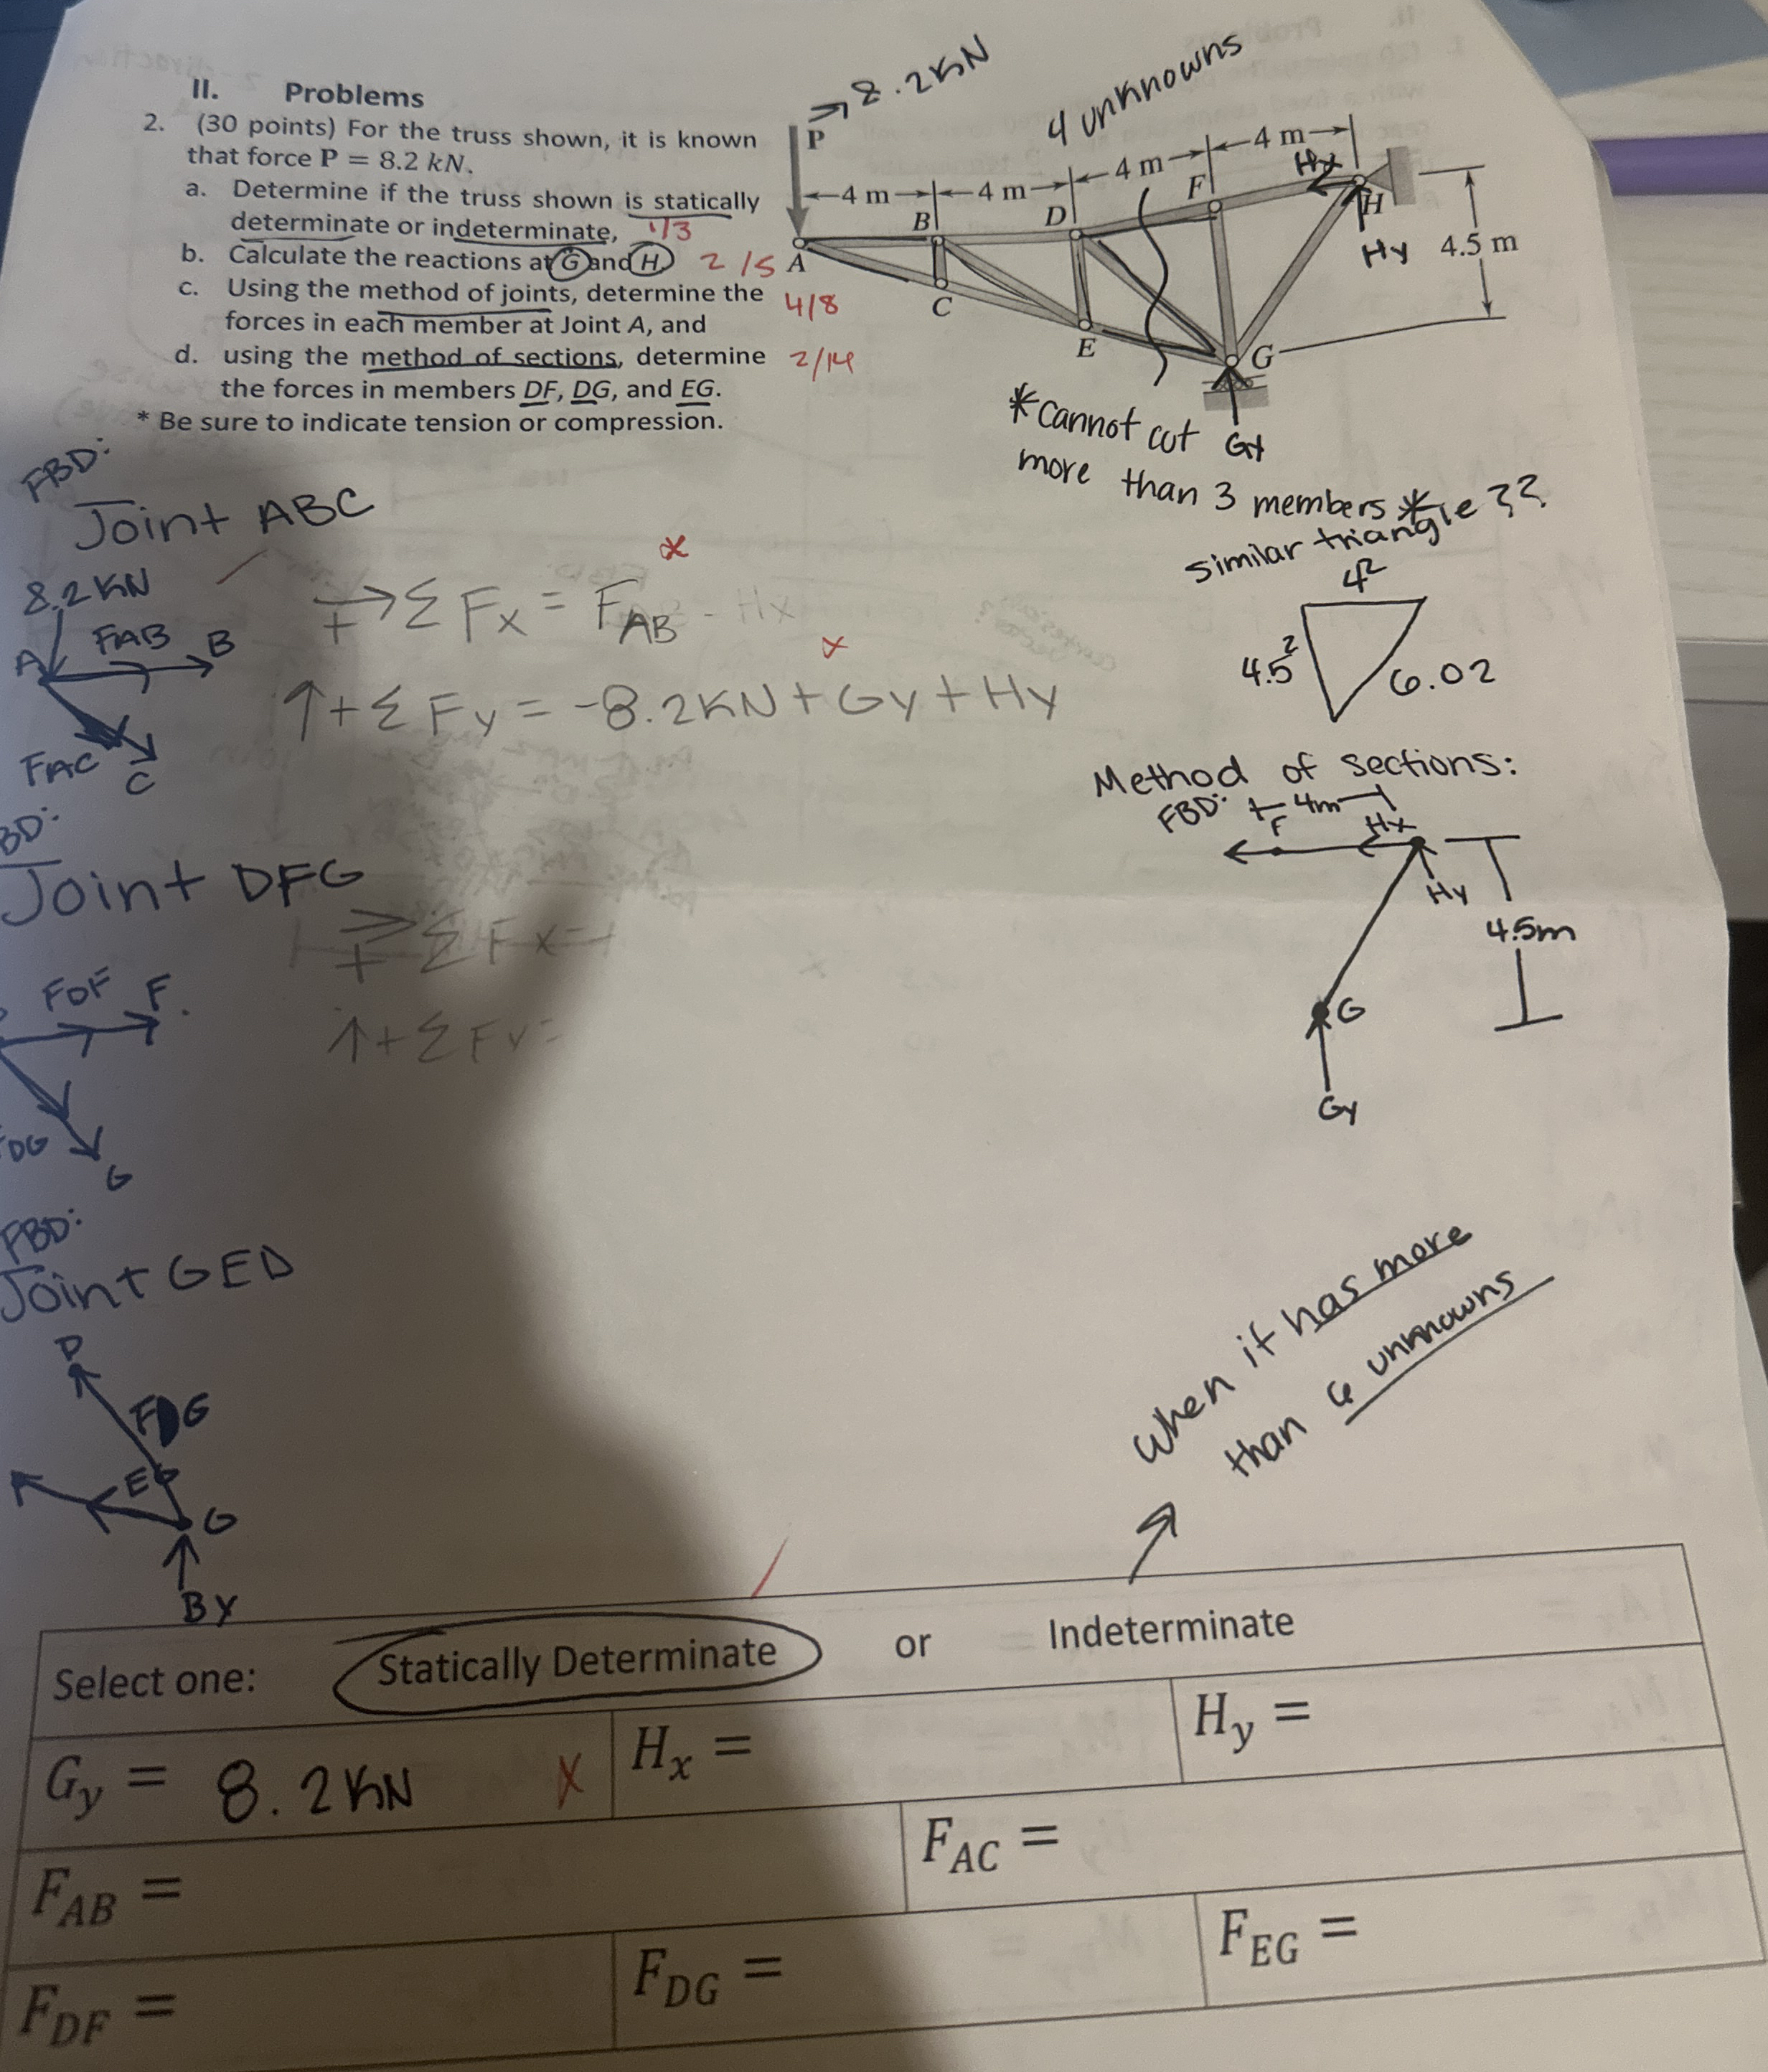 II. Problems
2. (30 points) For the truss shown, it is known
that force P = 8.2 kN.
a. Determine if the truss shown is statically
determinate or indeterminate, 1/3
b. Calculate the reactions at G and H, 2/5
c. Using the method of joints, determine the 4/8
forces in each member at Joint A, and
d. using the method of sections, determine 2/14
the forces in members DF, DG, and EG.
* Be sure to indicate tension or compression.
P → 8.2KN
4 unknowns
4 m 4 m 4 m 4 m
A B C D E F G H
Hx
Hy
4.5 m
Gy
*cannot cut
more than 3 members*
similar triangle??
4²
4.5²
6.02
FBD:
Joint ABC
8.2KN
A FAB B
FAC
C
→+ ΣFx = FAB - Hx
x
↑+ΣFy = -8.2KN+Gy+Hy
x
Method of sections:
FBD: 4m
F Hx
Hy
4.5m
G
Gy
BD:
Joint DFG
→+ ΣFx=
FDF F
↑+ΣFy=
DG
G
FBD:
Joint GED
D
FDG
G
By
when it has more
than 6 unknowns
Select one: Statically Determinate or Indeterminate
Gy = 8.2KN X
Hx =
Hy =
FAB =
FAC =
FDF =
FDG =
FEG =